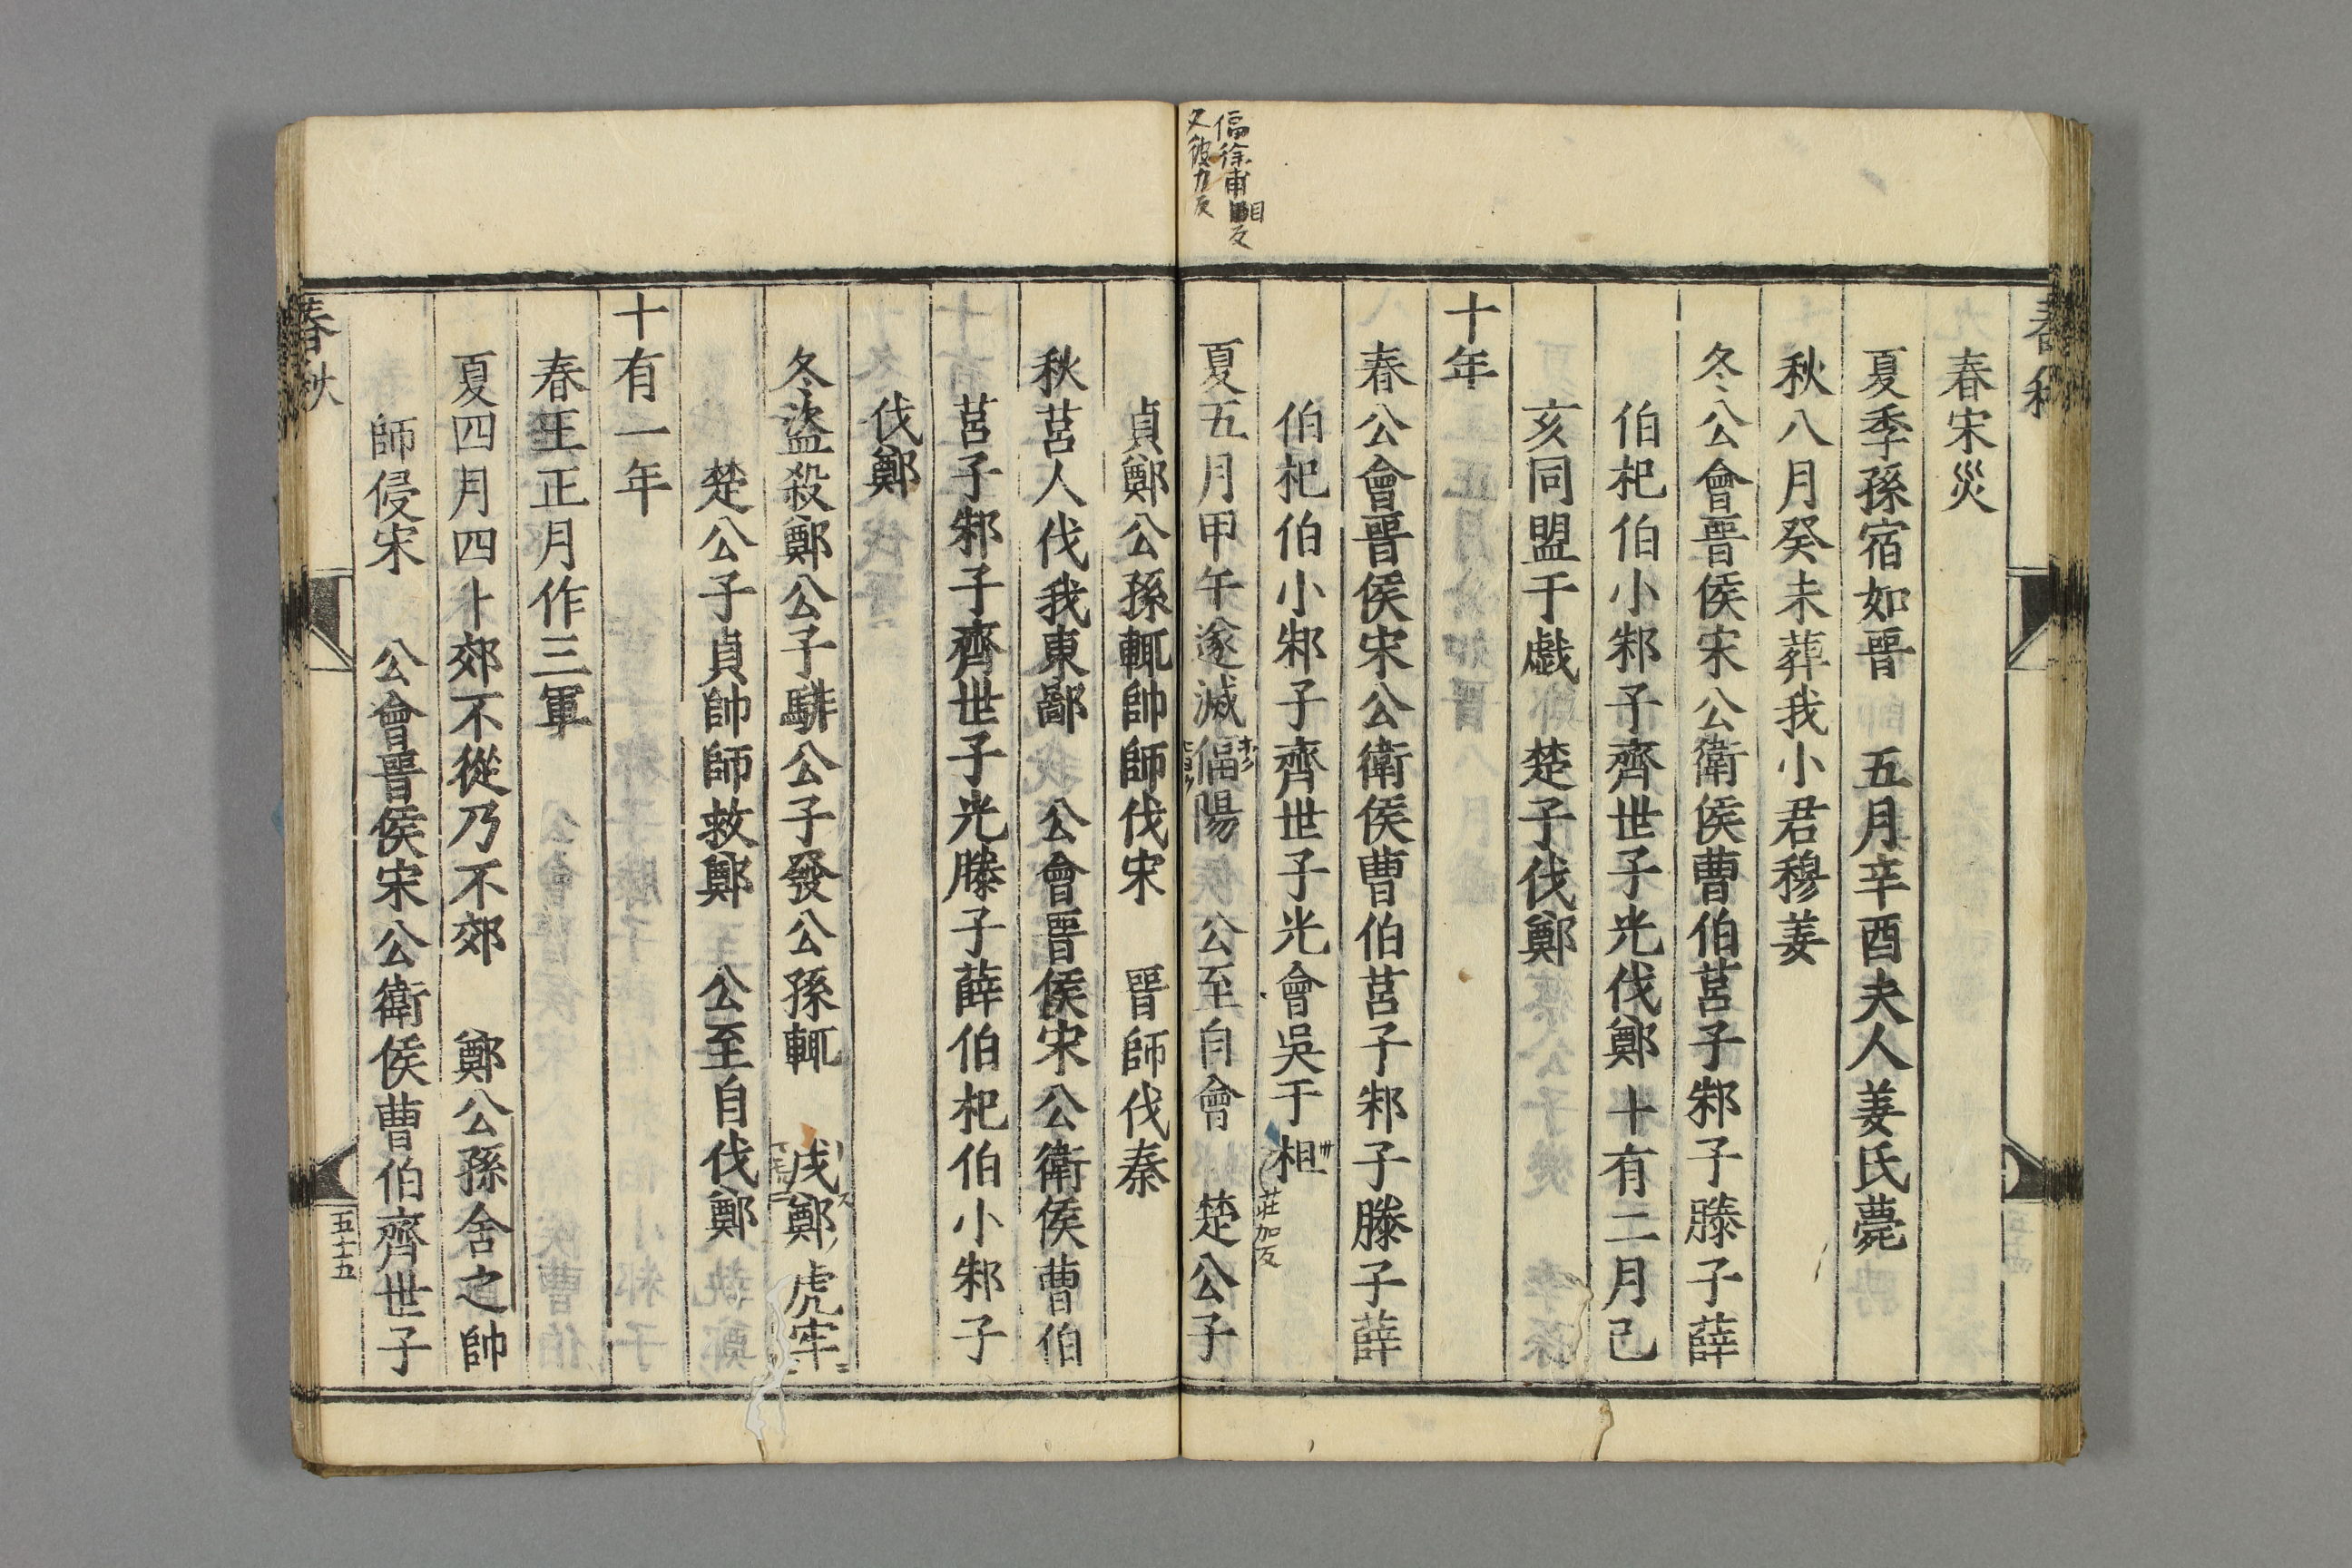 偪徐甫目反
又彼力反
春秋
春宋災
夏季孫宿如晋　五月辛酉夫人姜氏薨
秋八月癸未葬我小君穆姜
冬公會晋侯宋公衛侯曹伯莒子邾子滕子薛
伯杞伯小邾子齊世子光伐鄭十有二月己
亥同盟于戯　楚子伐鄭
十年
春公會晋侯宋公衛侯曹伯莒子邾子滕子薛
伯杞伯小邾子齊世子光會吳于柤 莊加反
夏五月甲午遂滅偪陽　公至自會　楚公子
貞鄭公孫輒帥師伐宋　晋師伐秦
秋莒人伐我東鄙　公會晋侯宋公衛侯曹伯
莒子邾子齊世子光滕子薛伯杞伯小邾子
伐鄭
冬盗殺鄭公子騑公子發公孫輒　戍鄭虎牢
楚公子貞帥師救鄭　公至自伐鄭
十有一年
春王正月作三軍
夏四月四卜郊不從乃不郊　鄭公孫舍之帥
師侵宋　公會晋侯宋公衛侯曹伯齊世子
春秋
五十五